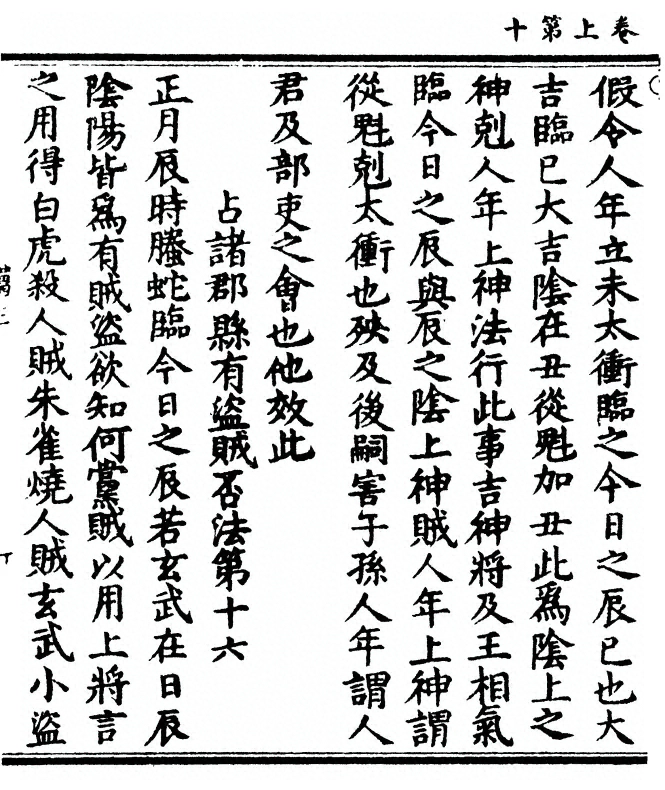 卷上第十
假令人年立未太衝臨之今日之辰巳也大
吉臨巳大吉陰在丑從魁加丑此爲陰上之
神剋人年上神法行此事吉神將及王相氣
臨今日之辰與辰之陰上神賊人年上神謂
從魁剋太衝也殃及後嗣害于孫人年謂人
君及部吏之會也他效此
占諸郡縣有盜賊否法第十六
正月辰時螣蛇臨今日之辰若玄武在日辰
陰陽皆爲有賊盜欲知何黨賊以用上將言
之用得白虎殺人賊朱雀燒人賊玄武小盜